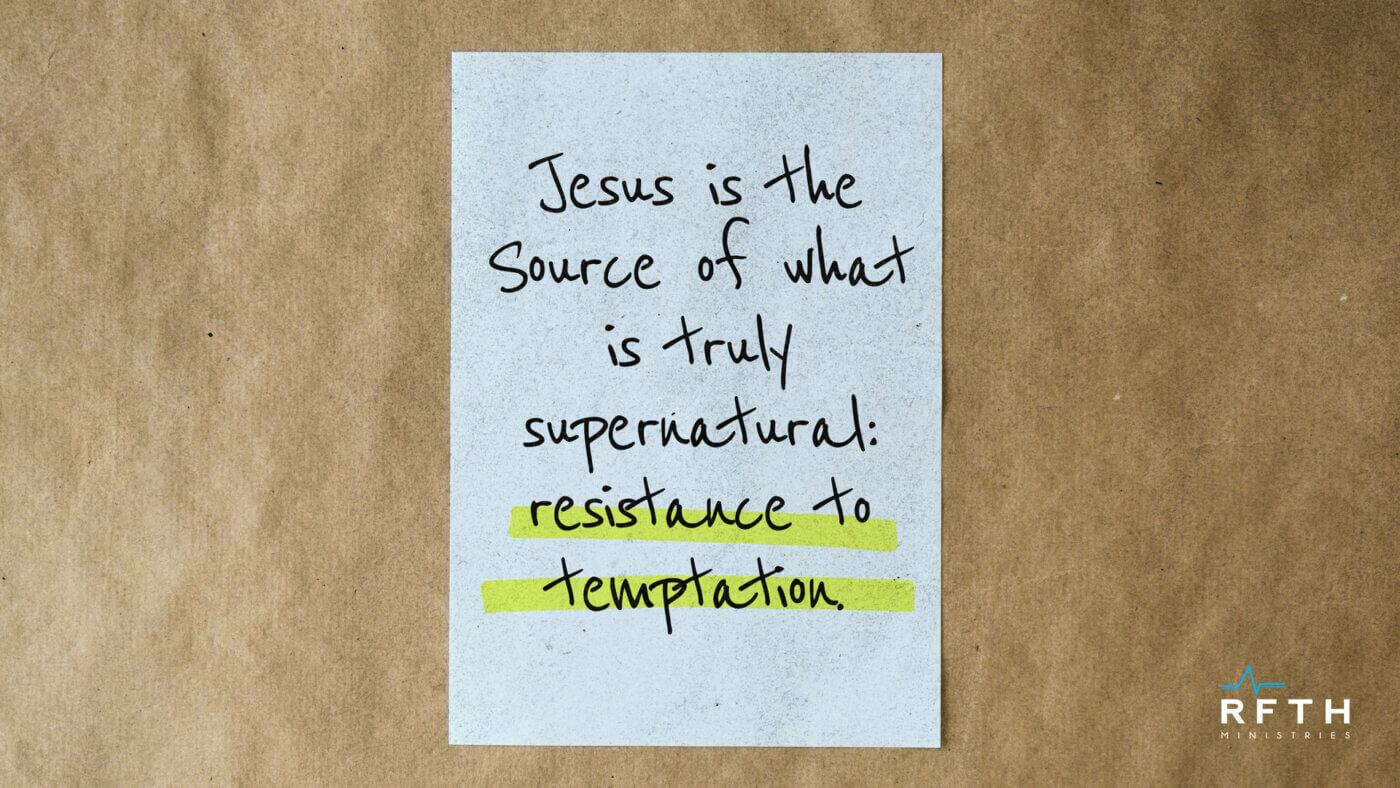 Jesus is the
Source of what
is truly
supernatural:
resistance to
temptation.
RFTH
MINISTRIES